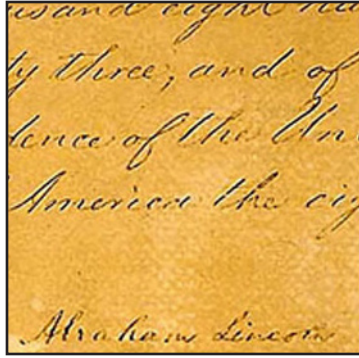 usand eight hu
ty three, and of
dence of the Un
America the eig
Abraham Lincoln